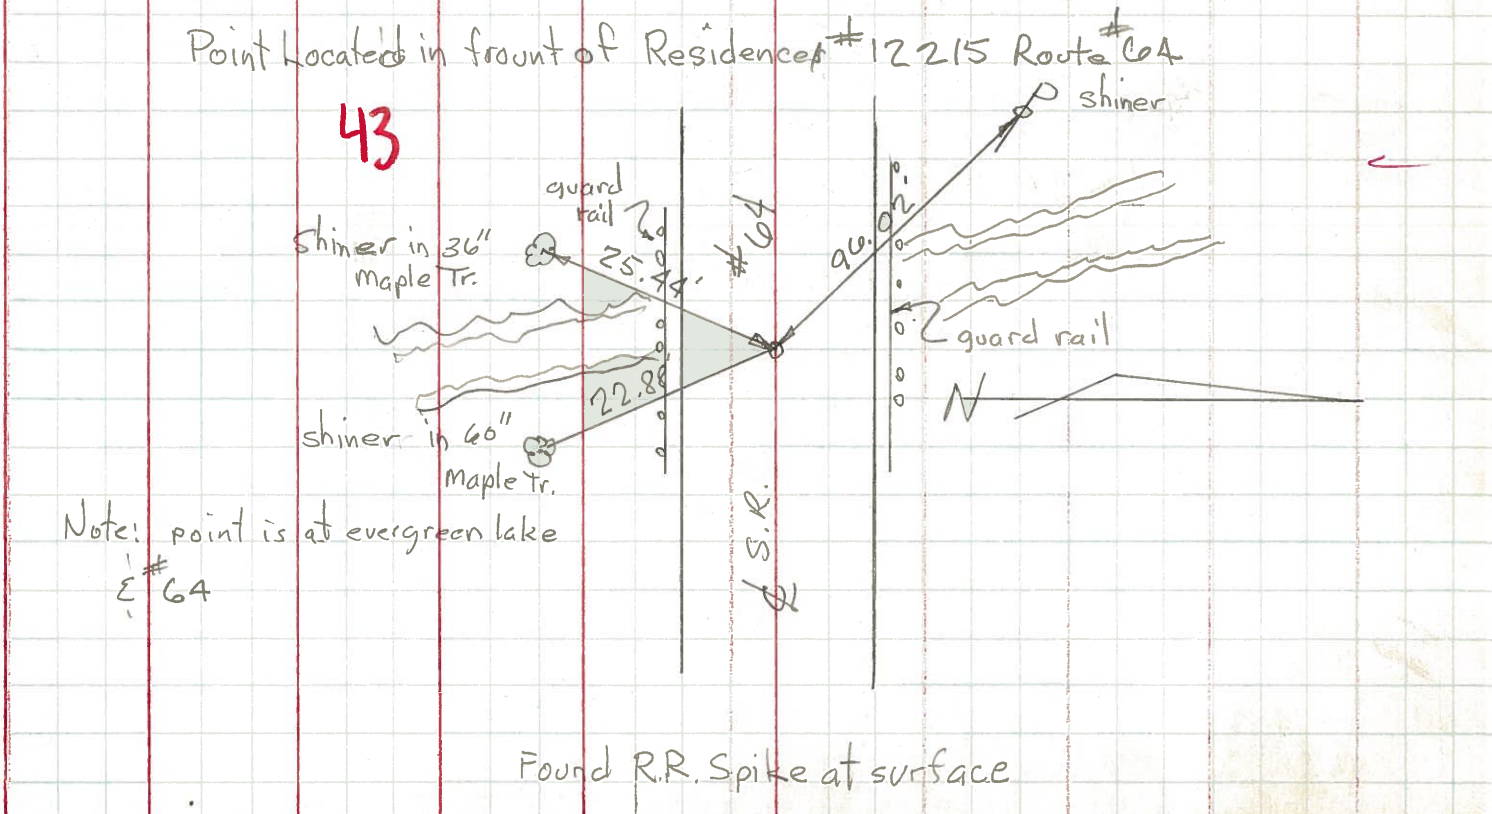 Point Located in frount of Residence #12215 Route #64
43
shiner
guard
rail
#64
96.02'
shiner in 36"
maple Tr.
25.44'
guard rail
22.88
N
shiner in 60"
maple Tr.
℄ S.R.
Note: point is at evergreen lake
& #64
Found R.R. Spike at surface